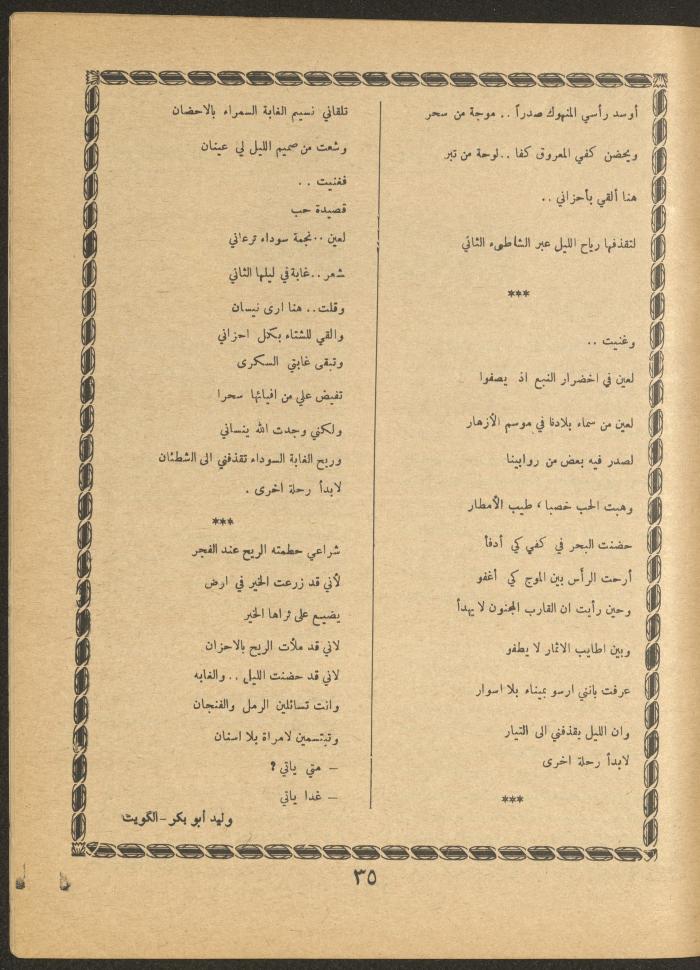 أوسد رأسي المنهوك صدراً .. موجة من سحر
ويحضن كفي المعروق كفا .. لوحة من تبر
هنا ألقي بأحزاني ..
لتقذفها رياح الليل عبر الشاطىء الثاني
***
وغنيت ..
لعين في اخضرار النبع اذ يصفوا
لعين من سماء بلادنا في موسم الأزهار
لصدر فيه بعض من روابينا
وهبت الحب خصبا ، طيب الأمطار
حضنت البحر في كفي كي أدفأ
أرحت الرأس بين الموج كي أغفو
وحين رأيت ان القارب المجنون لا يهدأ
وبين اطايب الاثمار لا يطفو
عرفت بانني ارسو بميناء بلا اسوار
وان الليل يقذفني الى التيار
لابدأ رحلة اخرى
***
تلقاني نسيم الغابة السمراء بالاحضان
وشعت من صميم الليل لي عينان
فغنيت ..
قصيدة حب
لعين .. نجمة سوداء ترعاني
شعر .. غابة في ليلها الثاني
وقلت .. هنا ارى نيسان
والقي للشتاء بكل احزاني
وتبقى غابتي السكرى
تفيض علي من افيائها سحرا
ولكني وجدت الله ينساني
وريح الغابة السوداء تقذفني الى الشطئان
لابدأ رحلة اخرى .
***
شراعي حطمته الريح عند الفجر
لأني قد زرعت الخير في ارض
يضيع على ثراها الخير
لاني قد ملأت الريح بالاحزان
لاني قد حضنت الليل .. والغابه
وانت تسائلين الرمل والفنجان
وتبتسمين لامراة بلا اسنان
– متى ياتي ؟
– غدا ياتي
وليد أبو بكر – الكويت
٣٥